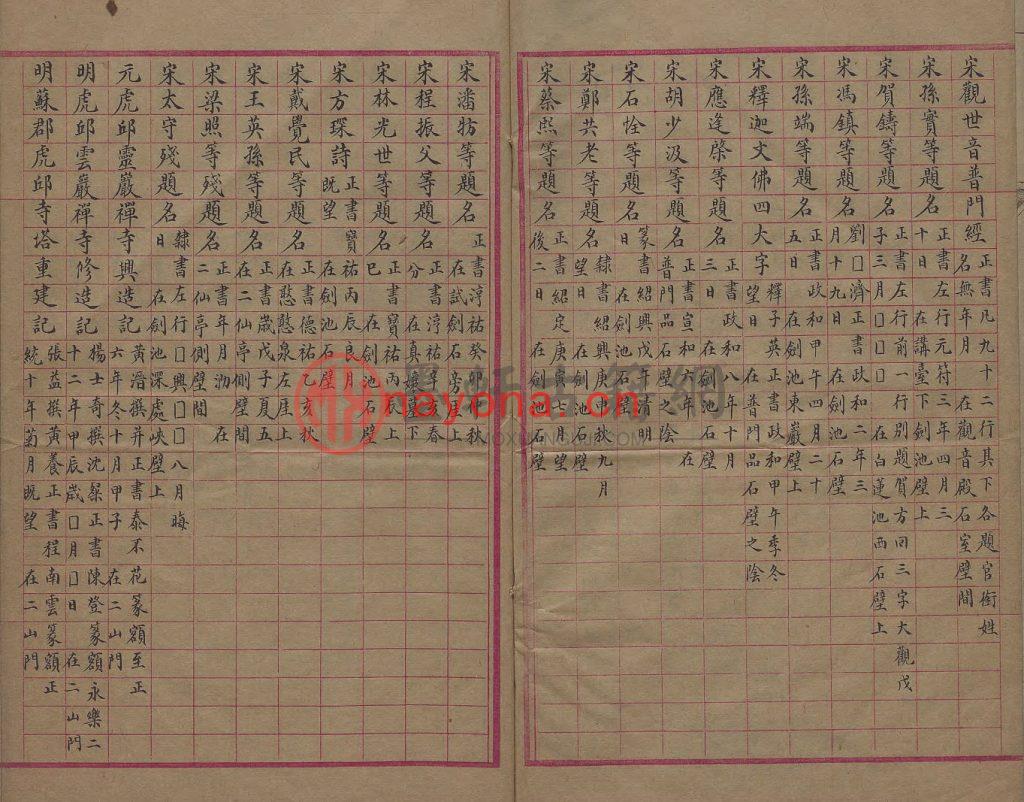 宋觀世音普門經
正書凡九十二行其下各題官銜姓
名無年月在觀音殿石室壁間
宋孫實等題名
正書左行元符三年四月三
十日在講臺下劍池壁上
宋賀鑄等題名
正書左行前一行別題賀方回三字大觀戊
子三月□□□在白蓮池西石壁上
宋馮鎮等題名
劉□濟書正書政和二年三
月十九日在劍池石壁
宋孫端等題名
正書政和甲午四月二十
五日在劍池東巖壁上
宋釋迦文佛四大字
釋子英正書政和甲午季冬
望日在普門品石壁之陰
宋應逢棨等題名
正書政和八年十月
三日在劍池石壁
宋胡少汲等題名
正書宣和年在
普門品石壁之陰
宋石等題名
篆書紹興戊清明
日在劍池石壁
宋鄭共老等題名
隸書紹興庚秋九月
望日在劍池石壁
宋蔡熙等題名
正書紹定庚寅七月望
後二日在劍池石壁
宋潘牥等題名
正書淳祐癸卯仲秋
在試劍石旁崖上
宋程振父等題名
正書淳祐辛亥春
分在真孃墓下
宋林光世等題名
正書寶祐丙辰上
巳在劍池石壁
宋方琛詩
正書寶祐丙辰良月
既望在劍池石壁
宋戴覺民等題名
正書德祐乙亥秋
在憨憨泉左厓上
宋王英孫等題名
正書歲戊子夏五
在二仙亭側壁間
宋梁照等殘題名
正書年月泐在
二仙亭側壁間
宋太守殘題名
隸書左行□□興□□八月晦
日在劍池深處峽壁上
元虎邱靈巖禪寺興造記
黃溍撰并正書泰不花篆額至正
六年冬十月甲子在二山門
明虎邱雲巖禪寺修造記
楊士奇撰沈粲正書陳登篆額永樂二
十二年甲辰歲□月□日在二山門
明蘇郡虎邱寺塔重建記
張益撰黃養正書程南雲篆額正
統十年菊月既望在二山門
nayona.cn